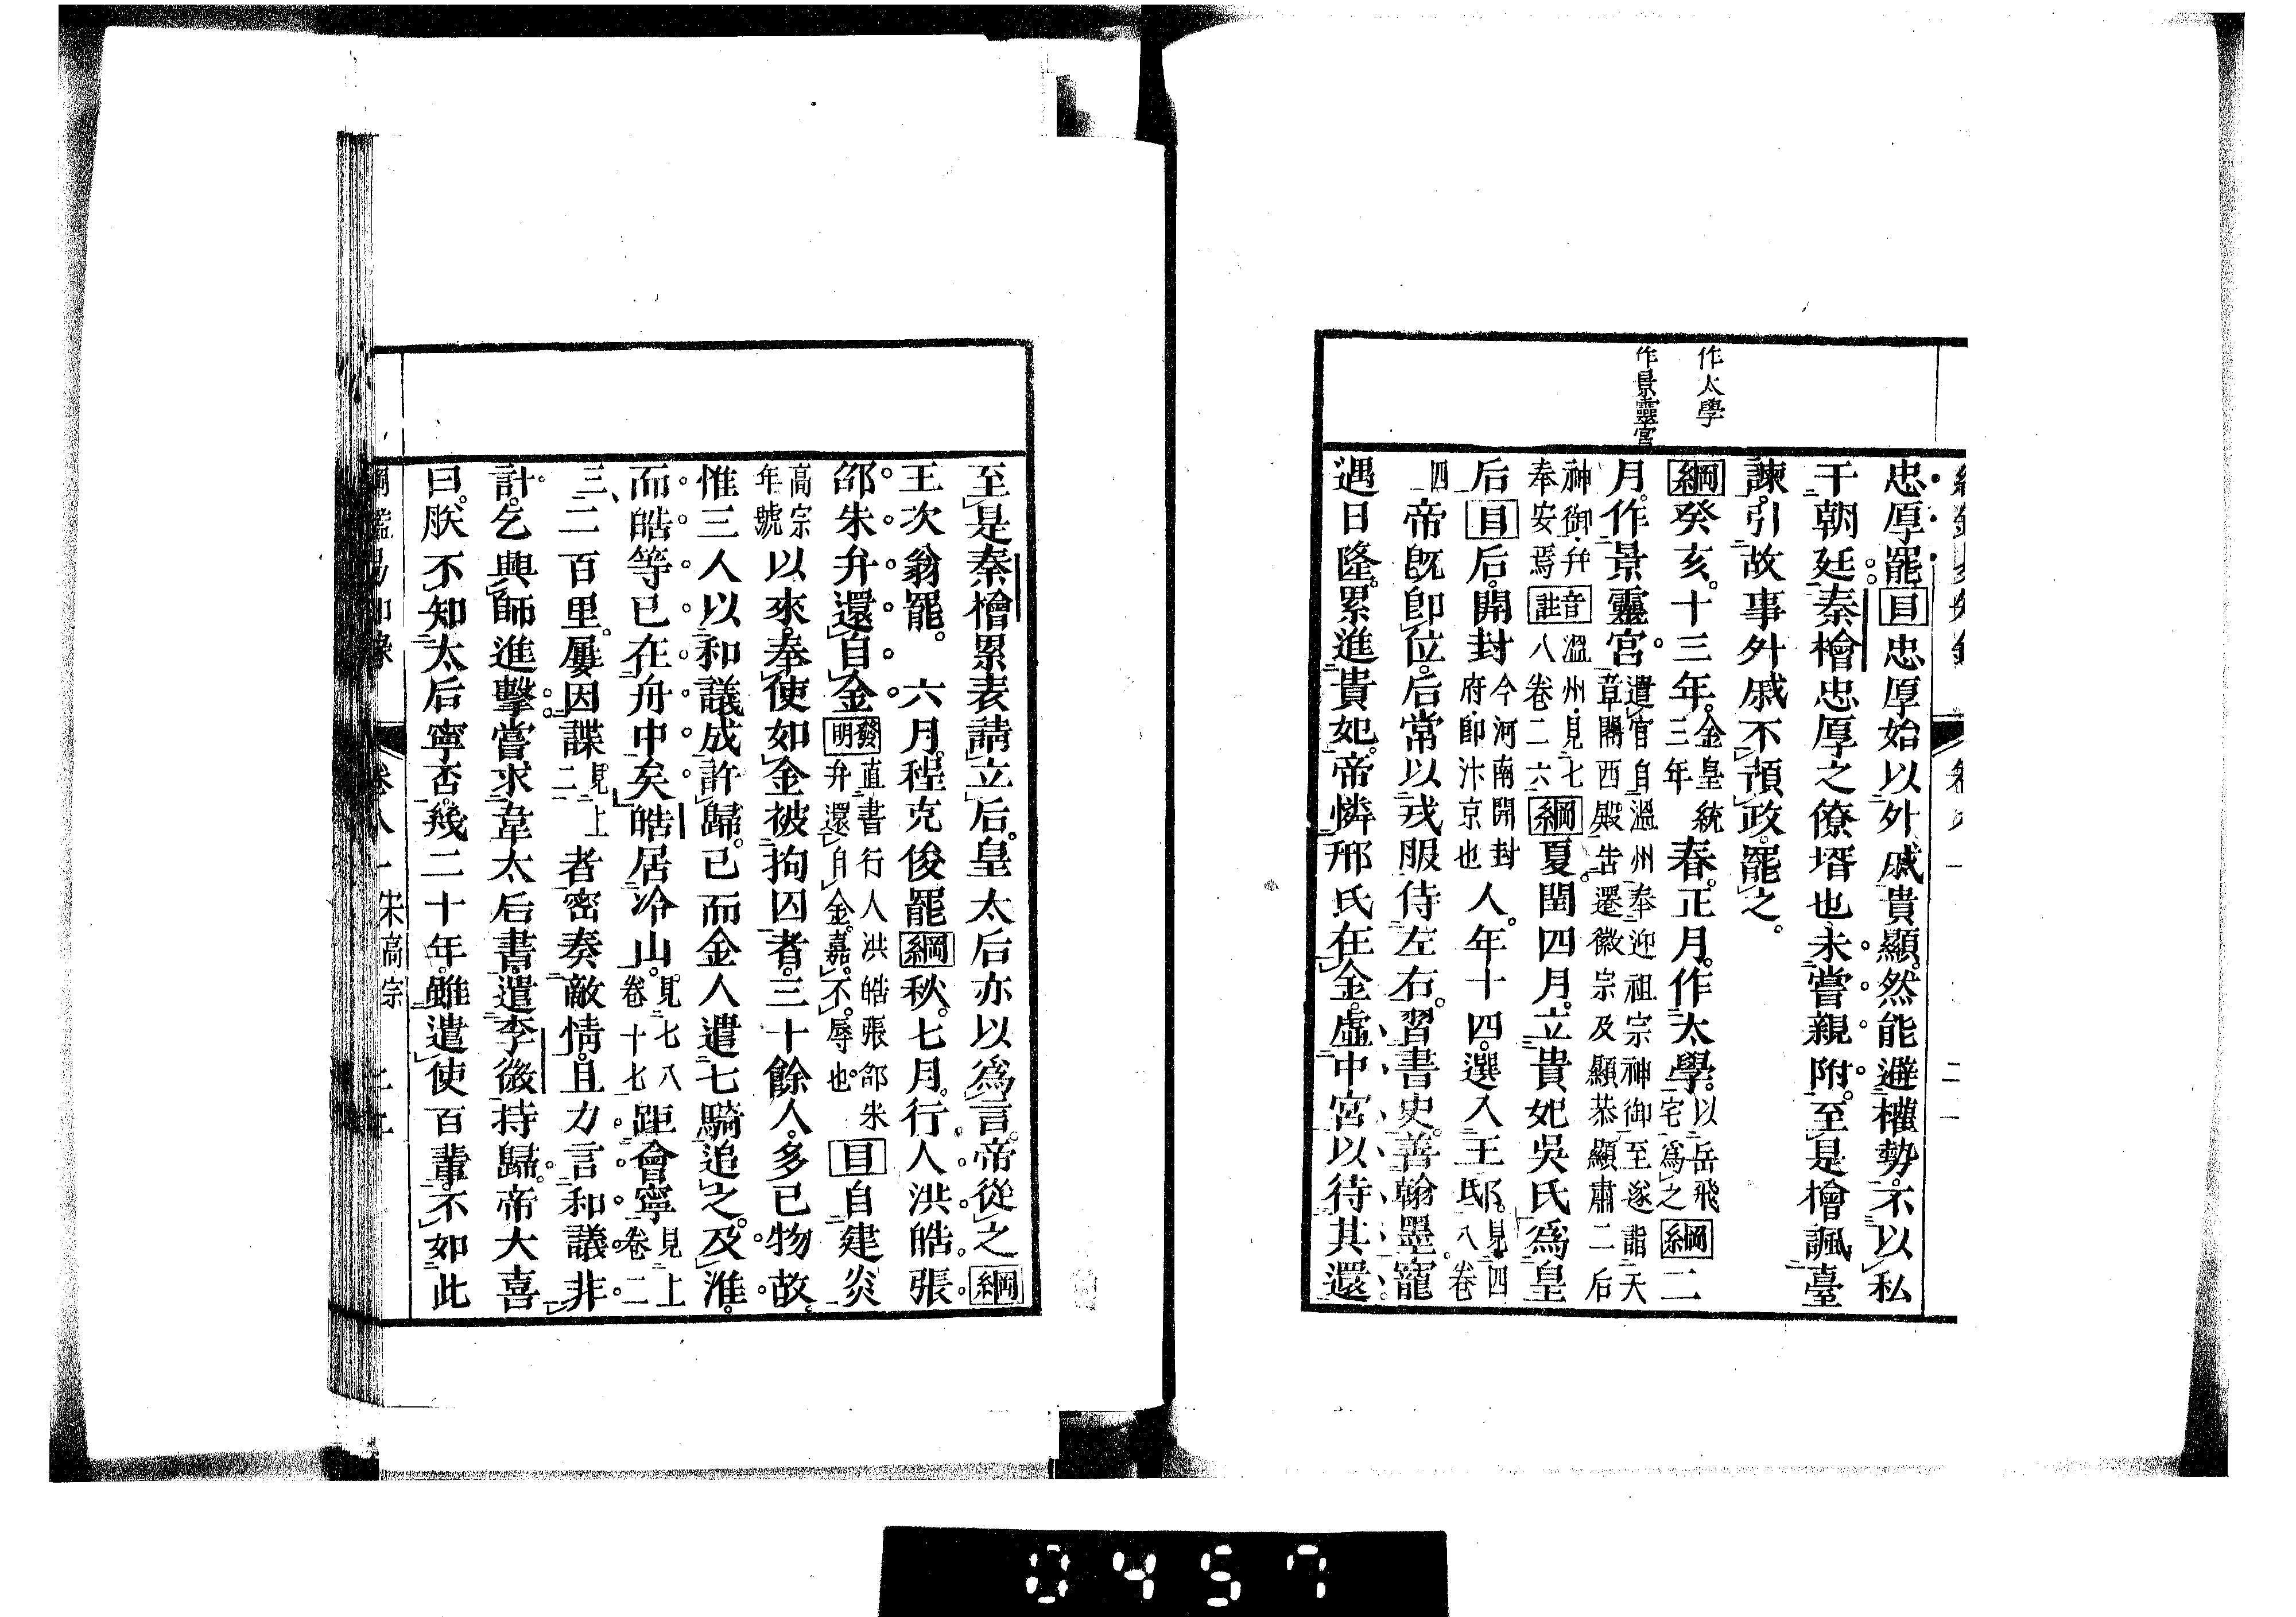 作太學
作景靈宮
忠厚罷目忠厚始以外戚貴顯然能避權勢不以私
干朝廷秦檜忠厚之僚壻也未嘗親附至是檜諷臺
諫引故事外戚不預政罷之
綱癸亥十三年金皇統三年春正月作太學以岳飛宅爲之綱二
月作景靈宮遣官自溫州奉迎祖宗神御至遂詣天章閣西殿告還徽宗及顯恭顯肅二后
神御幷奉安焉註音溫州見七八卷二六綱夏閏四月立貴妃吳氏爲皇
后目后開封今河南開封府卽汴京也人年十四選入王邸見四八卷
四帝旣卽位后常以戎服侍左右習書史善翰墨寵
遇日隆累進貴妃帝憐邢氏在金虛中宮以待其還
至是秦檜累表請立后皇太后亦以爲言帝從之綱
王次翁罷六月程克俊罷綱秋七月行人洪皓張
邵朱弁還自金發明直書行人洪皓張邵朱弁還自金嘉不辱也目自建炎
高宗年號以來奉使如金被拘囚者三十餘人多已物故
惟三人以和議成許歸已而金人遣七騎追之及淮
而皓等已在舟中矣皓居冷山見七八卷十七距會寧見上卷二
三二百里屢因諜見上二者密奏敵情且力言和議非
計乞興師進擊嘗求韋太后書遣李微持歸帝大喜
曰朕不知太后寧否幾二十年雖遣使百輩不如此
卷八十 宋高宗